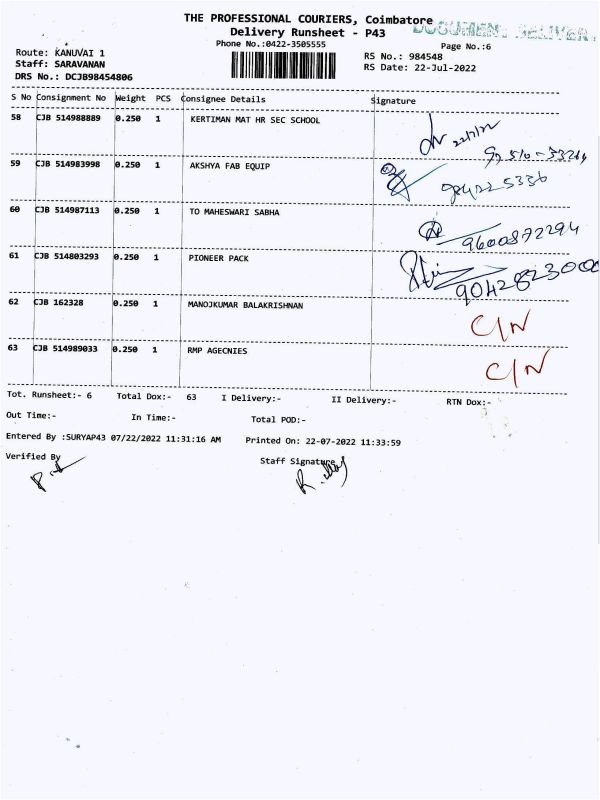 THE PROFESSIONAL COURIERS, Coimbatore
DOCUMENT DELIVERY
Delivery Runsheet - P43
Phone No.:0422-3505555
Page No.:6
Route: KANUVAI 1
RS No.: 984548
Staff: SARAVANAN
RS Date: 22-Jul-2022
DRS No.: DCJB98454806
S No Consignment No Weight PCS Consignee Details Signature
58 CJB 514988889 0.250 1 KERTIMAN MAT HR SEC SCHOOL
22/7/22
59 CJB 514983998 0.250 1 AKSHYA FAB EQUIP
60 CJB 514987113 0.250 1 TO MAHESWARI SABHA
9600872294
61 CJB 514803293 0.250 1 PIONEER PACK
9042823000
62 CJB 162328 0.250 1 MANOJKUMAR BALAKRISHNAN C/N
63 CJB 514989033 0.250 1 RMP AGECNIES C/N
Tot. Runsheet:- 6 Total Dox:- 63 I Delivery:- II Delivery:- RTN Dox:-
Out Time:- In Time:- Total POD:-
Entered By :SURYAP43 07/22/2022 11:31:16 AM Printed On: 22-07-2022 11:33:59
Verified By Staff Signature